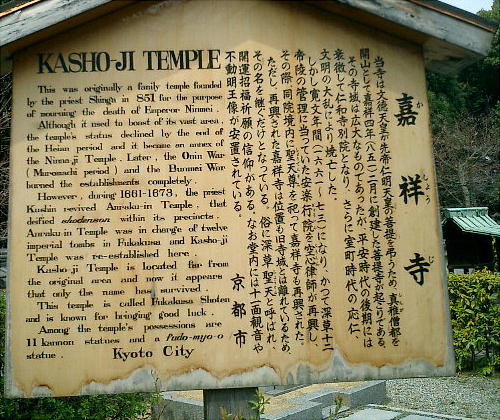 KASHO-JI TEMPLE
This was originally a family temple founded
by the priest Shinga in 851 for the purpose
of mourning the death of Emperor Ninmei.
Although it used to boast of its vast area,
the temple's status declined by the end of
the Heian period and it became an annex of
the Ninna-ji Temple. Later, the Onin War
(Muromachi period) and the Bunmei War
burned the establishments completely.
However, during 1661-1673, the priest
Kushin revived Anraku-in Temple, that
deified shodenson within its precincts.
Anraku-in Temple was in charge of twelve
imperial tombs in Fukakusa and Kasho-ji
Temple was re-established here.
Kasho-ji Temple is located far from
the original area and now it appears
that only the name has survived.
This temple is called Fukakusa Shoten
and is known for bringing good luck.
Among the temple's possessions are
11 kannon statues and a Fudo-myo-o
statue.
Kyoto City
嘉祥寺
か しょう じ
当寺は文徳天皇が先帝仁明天皇の菩提を弔うため、真雅僧都を
開山として嘉祥四年(八五一)二月に創建した菩提寺が起こりである。
その寺域は広大なものであったが、平安時代の後期には
衰微して仁和寺別院となり、さらに室町時代の応仁、
文明の大乱により焼亡した。
しかし寛文年間(一六六一〜七三)になり、かつて深草十二
帝陵の管理に当っていた安楽行院を空心律師が再興し、
その際同院境内に聖天尊を祀って嘉祥寺も再興された。
ただし、再興された嘉祥寺は位置も旧寺域とは離れているため、
その名を継いだだけとなっている。俗に深草聖天と呼ばれ、
開運招福祈願の信仰がある。なお堂内には十一面観音や
不動明王像が安置されている。
京都市